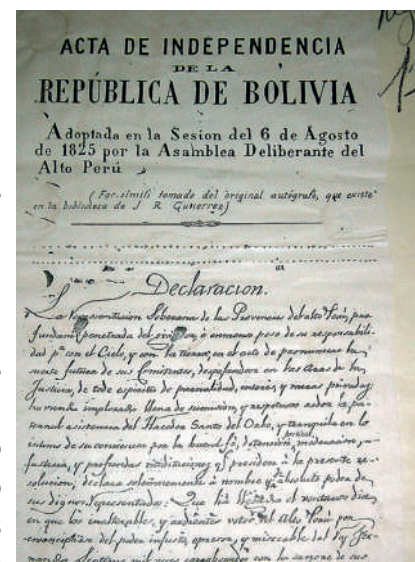 ACTA DE INDEPENDENCIA
DE LA
REPÚBLICA DE BOLIVIA
Adoptada en la Sesion del 6 de Agosto
de 1825 por la Asamblea Deliberante del
Alto Perú
(Facsímili tomado del original autógrafo, que existe
en la biblioteca de J R Gutierrez)
Declaracion.
La Representacion Soberana de las Provincias del alto Perú, pro
fundamte penetrada del é inmenso peso de su responsabili
dad pa con el Cielo, y con la tierra, en el acto de pronunciar la
suerte futura de sus comitentes, despojandose en las aras de la
Justicia, de todo espiritu de parcialidad, interes, y miras privadas
habiendo implorado llena de sumision, y respetuoso ardor la pa
ternal asistencia del Hacedor Santo del Orbe, y tranquila en lo
intimo de su conciencia por la buena fé, detencion, moderacion,
justicia, y profundas meditaciones qe presiden á la presente re
solucion, declara solemnemente á nombre y absoluto poder de
sus dignos representados: Que há llegado el venturoso dia
en que los inalterables, y ardientes votos del Alto Perú por
emanciparse del poder injusto, opresor, y miserable del Rey Fer
nando Septimo mil veces corroborados con la sangre de sus